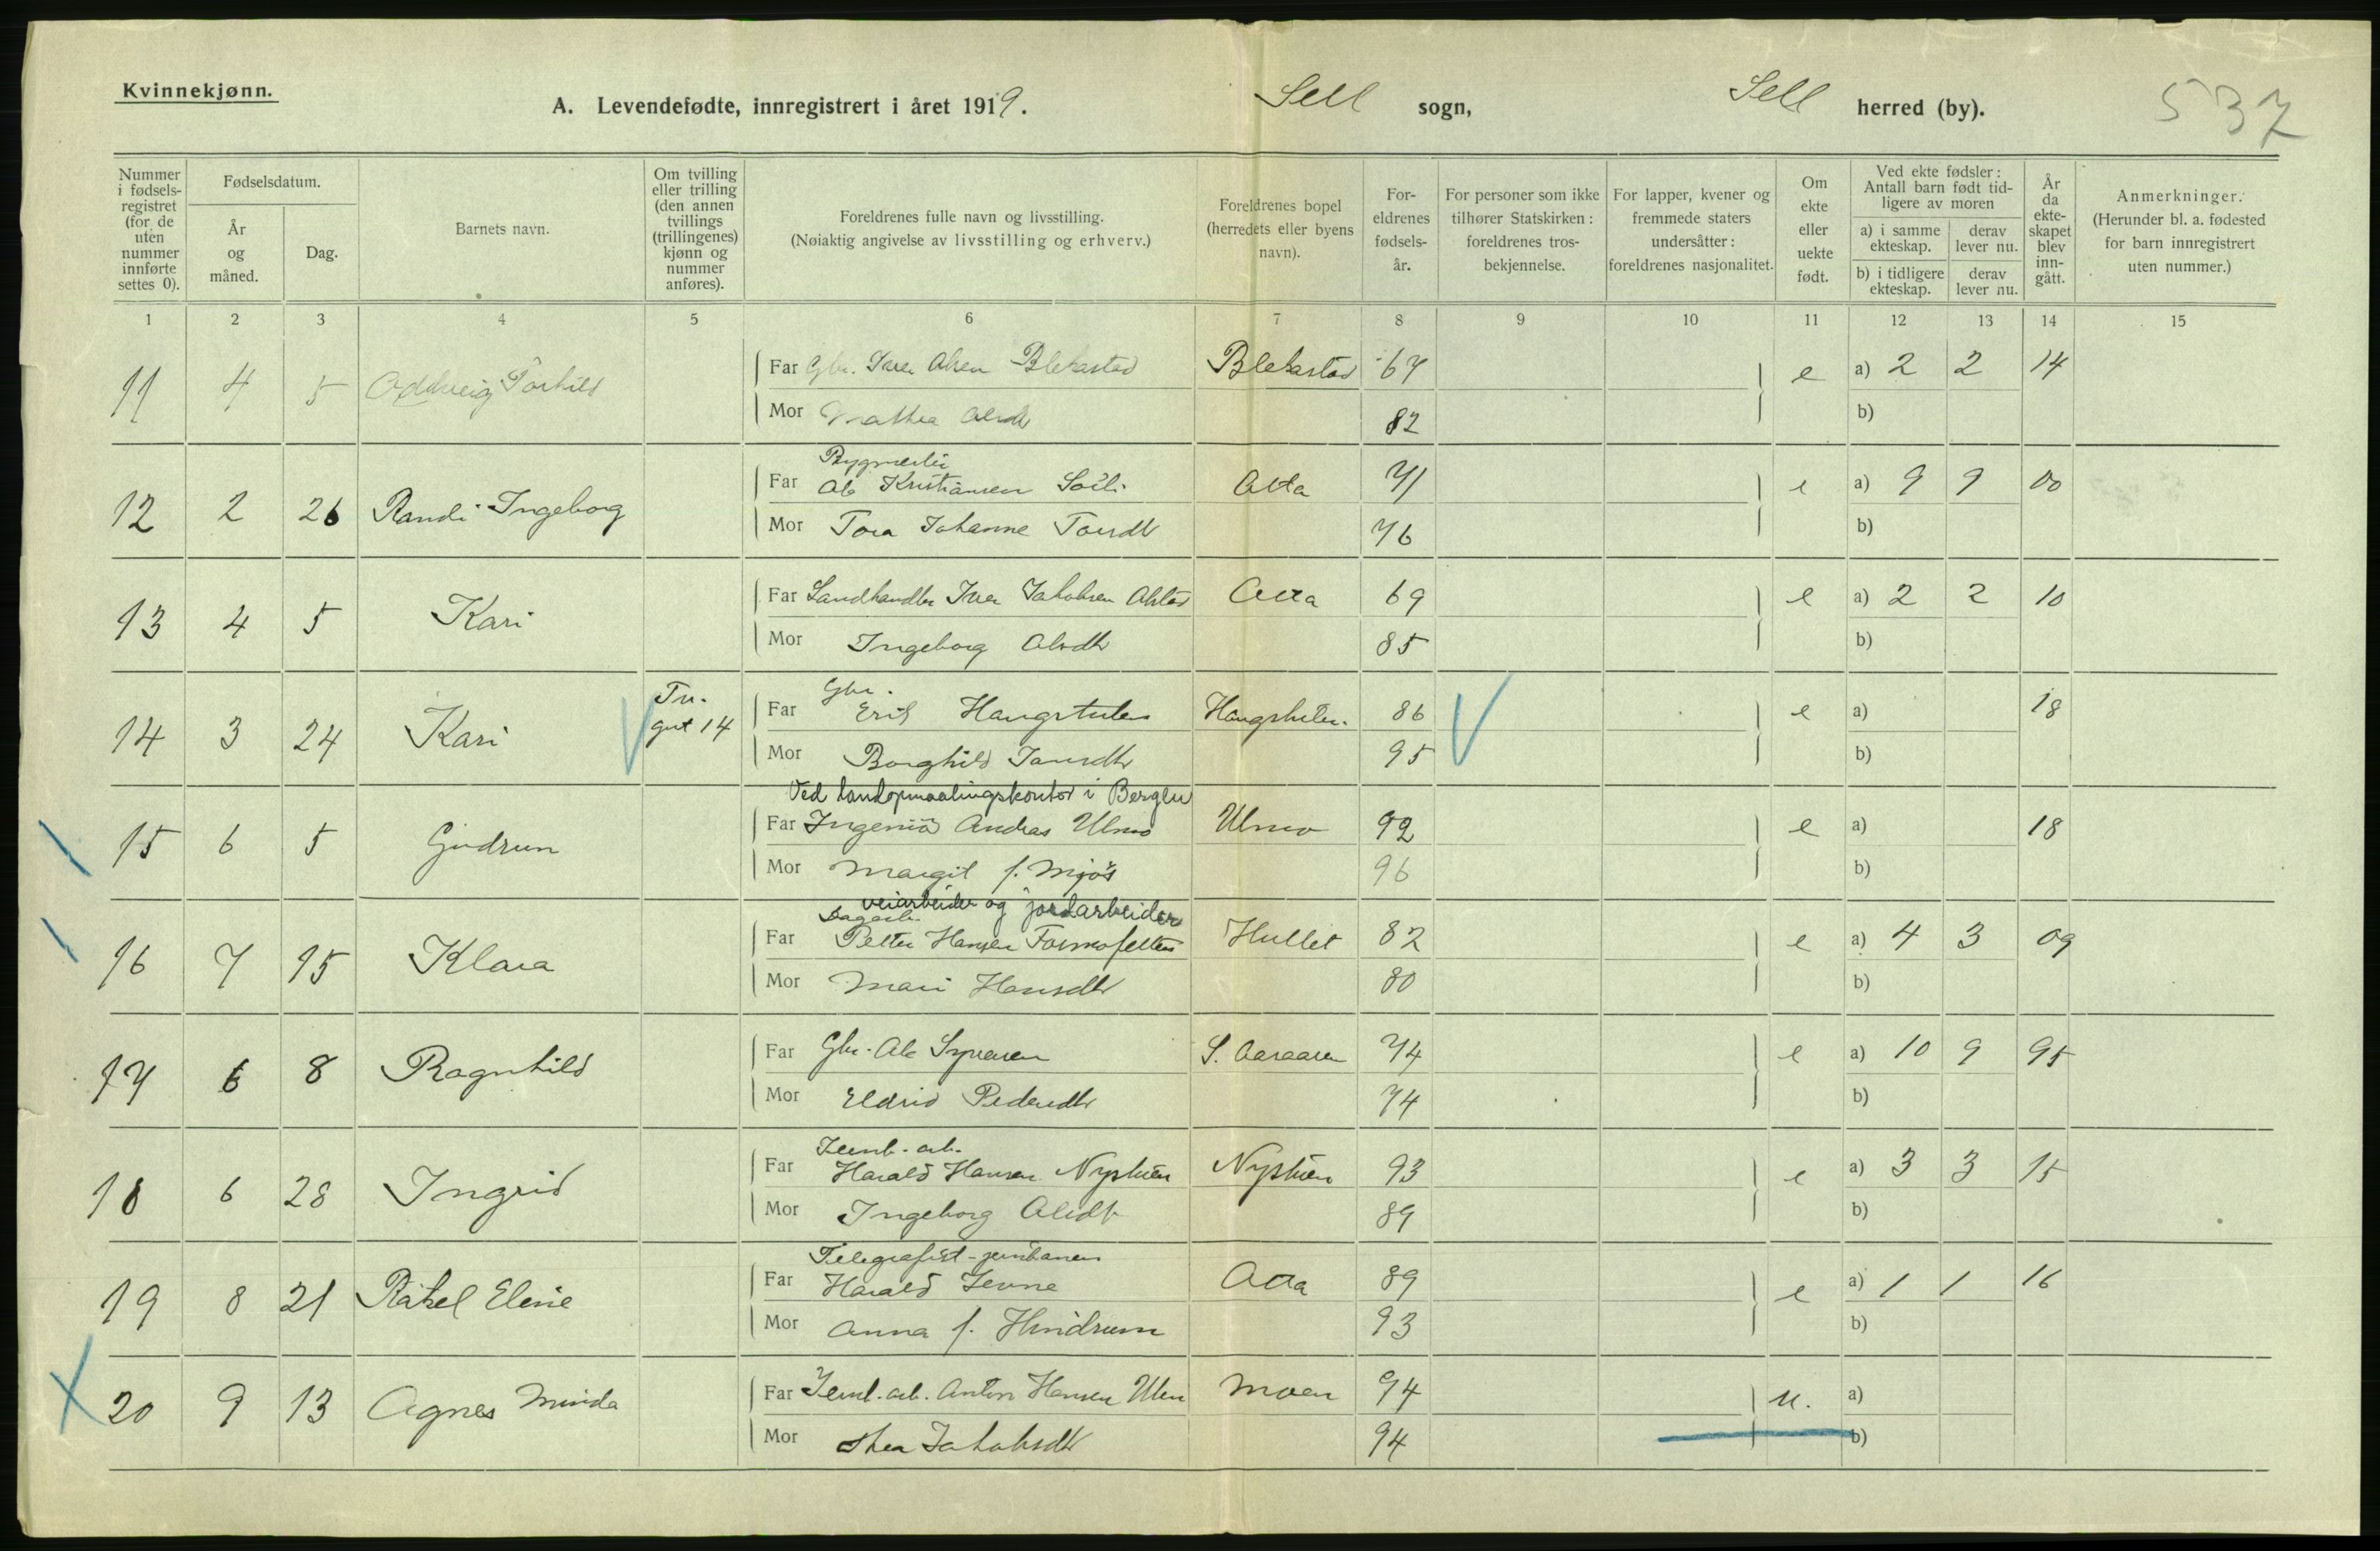 Kvinnekjønn.
A. Levendefødte, innregistrert i året 1919. Sell sogn, Sell herred (by). 537
Nummer i fødsels-registret (for de uten nummer innførte settes 0).
Fødselsdatum.
År og måned.
Dag.
Barnets navn.
Om tvilling eller trilling (den annen tvillings (trillingenes) kjønn og nummer anføres).
Foreldrenes fulle navn og livsstilling.
(Nøiaktig angivelse av livsstilling og erhverv.)
Foreldrenes bopel (herredets eller byens navn).
For-eldrenes fødsels-år.
For personer som ikke tilhører Statskirken: foreldrenes tros-bekjennelse.
For lapper, kvener og fremmede staters undersåtter: foreldrenes nasjonalitet.
Om ekte eller uekte født.
Ved ekte fødsler: Antall barn født tid-ligere av moren
a) i samme ekteskap.
derav lever nu.
b) i tidligere ekteskap.
derav lever nu.
År da ekte-skapet blev inn-gått.
Anmerkninger.
(Herunder bl. a. fødested for barn innregistrert uten nummer.)
1 2 3 4 5 6 7 8 9 10 11 12 13 14 15
11 4 5 Oddveig Torhild Far Gbr. Iver Olsen Blekastad Blekastad 67 e a) 2 2 14
Mor Mathea Olsdt 82 b)
Bygmester
12 2 26 Randi Ingeborg Far Ole Kristiansen Otta 71 e a) 9 9 00
Mor Tora Johanne 76 b)
13 4 5 Kari Far Landhandler Iver Jakobsen Otta 69 e a) 2 2 10
Mor Ingeborg Olsdtr 85 b)
Tv. Gbr.
14 3 24 Kari gut 14 Far Erik Haugstulen Haugstulen 86 e a) 18
Mor Borghild 95 b)
Ved landopmaalingskontor i Bergen
15 6 5 Gudrun Far Ingeniør Andras Ulmo Ulmo 92 e a) 18
Mor Margit f. Mjøs 96 b)
veiarbeider og jordarbeider
16 7 15 Klara Far Petter Hansen Formofetten Hullet 82 e a) 4 3 09
Mor Mari Hansdtr 80 b)
17 6 8 Ragnhild Far Gbr. Ole Syversen S. Aaraasen 74 e a) 10 9 95
Mor Eldrid Pedersdtr 74 b)
Jernb. arb.
18 6 28 Ingrid Far Harald Hansen Nystuen Nystuen 93 e a) 3 3 15
Mor Ingeborg Olsdt 89 b)
Telegrafist-jernbanen
19 8 21 Rakel Eline Far Harald Jevne Otta 89 e a) 1 1 16
Mor Anna f. Hindrum 93 b)
20 9 13 Agnes Minda Far Jernb. arb. Anton Hansen Ulen Moen 94 u. a)
Mor Thea Jakobsdt 94 b)